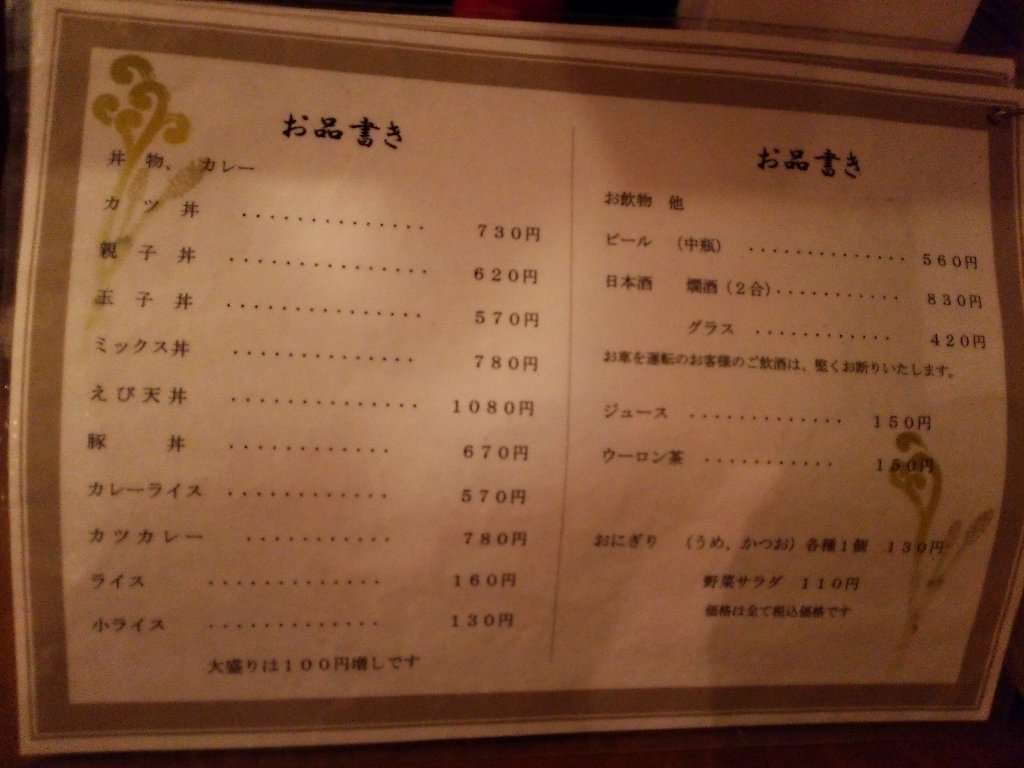 お品書き
丼　物、　カレー
カ　ツ　丼　・・・・・・・・・・・・・・　７３０円
親　子　丼　・・・・・・・・・・・・・・・　６２０円
玉　子　丼　・・・・・・・・・・・・・・・　５７０円
ミックス丼　・・・・・・・・・・・・・・　７８０円
えび天丼　・・・・・・・・・・・・・・・　１０８０円
豚　　　丼　・・・・・・・・・・・・　６７０円
カレーライス　・・・・・・・・・・・・　５７０円
カツカレー　・・・・・・・・・・・　７８０円
ライス　・・・・・・・・・・・・・　１６０円
小ライス　・・・・・・・・・・・・・　１３０円
大盛りは１００円増しです
お品書き
お飲物　他
ビール　（中瓶）　・・・・・・・・・・・・・・　５６０円
日本酒　　燗酒（２合）・・・・・・・・・・・　８３０円
グラス　・・・・・・・・・・・・　４２０円
お車を運転のお客様のご飲酒は、堅くお断りいたします。
ジュース　・・・・・・・・・・・・・　１５０円
ウーロン茶　・・・・・・・・・・・　１５０円
おにぎり　（うめ、かつお）各種１個　１３０円
野菜サラダ　１１０円
価格は全て税込価格です